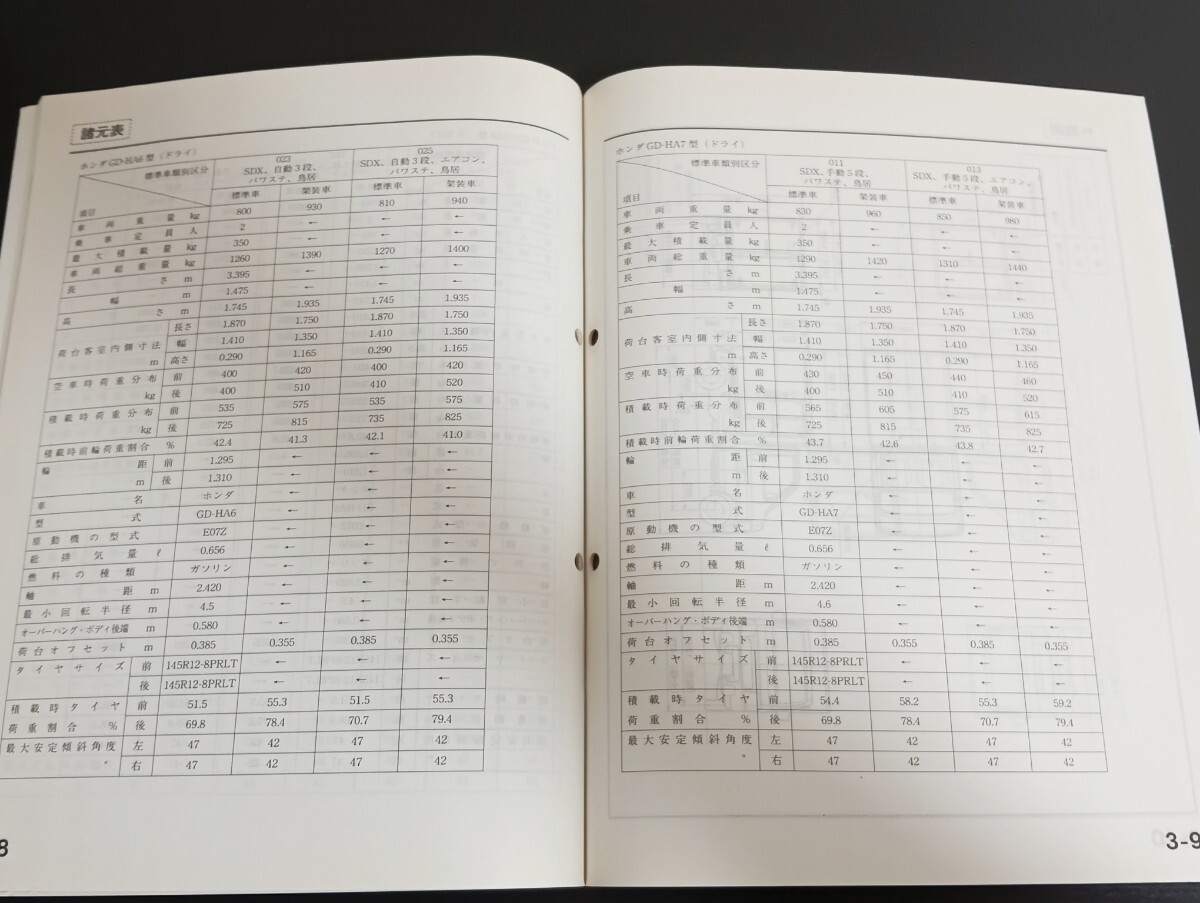 諸元表
ホンダGD-HA6型(ドライ)
標準車類別区分 023 025
SDX、自動3段、パワステ、鳥居 SDX、自動3段、エアコン、パワステ、鳥居
項目 標準車 架装車 標準車 架装車
車両重量 kg 800 930 810 940
乗車定員 人 2 ← ← ←
最大積載量 kg 350 ← ← ←
車両総重量 kg 1260 1390 1270 1400
長さ m 3.395 ← ← ←
幅 m 1.475 ← ← ←
高さ m 1.745 1.935 1.745 1.935
荷台客室内側寸法 m 長さ 1.870 1.750 1.870 1.750
幅 1.410 1.350 1.410 1.350
高さ 0.290 1.165 0.290 1.165
空車時荷重分布 kg 前 400 420 400 420
後 400 510 410 520
積載時荷重分布 kg 前 535 575 535 575
後 725 815 735 825
積載時前輪荷重割合 % 42.4 41.3 42.1 41.0
輪距 m 前 1.295 ← ← ←
後 1.310 ← ← ←
車名 ホンダ ← ← ←
型式 GD-HA6 ← ← ←
原動機の型式 E07Z ← ← ←
総排気量 ℓ 0.656 ← ← ←
燃料の種類 ガソリン ← ← ←
軸距 m 2.420 ← ← ←
最小回転半径 m 4.5 ← ← ←
オーバーハング・ボディ後端 m 0.580 ← ← ←
荷台オフセット m 0.385 0.355 0.385 0.355
タイヤサイズ 前 145R12-8PRLT ← ← ←
後 145R12-8PRLT ← ← ←
積載時タイヤ荷重割合 % 前 51.5 55.3 51.5 55.3
後 69.8 78.4 70.7 79.4
最大安定傾斜角度 ° 左 47 42 47 42
右 47 42 47 42
8
ホンダGD-HA7型(ドライ)
標準車類別区分 011 013
SDX、手動5段、パワステ、鳥居 SDX、手動5段、エアコン、パワステ、鳥居
項目 標準車 架装車 標準車 架装車
車両重量 kg 830 960 850 980
乗車定員 人 2 ← ← ←
最大積載量 kg 350 ← ← ←
車両総重量 kg 1290 1420 1310 1440
長さ m 3.395 ← ← ←
幅 m 1.475 ← ← ←
高さ m 1.745 1.935 1.745 1.935
荷台客室内側寸法 m 長さ 1.870 1.750 1.870 1.750
幅 1.410 1.350 1.410 1.350
高さ 0.290 1.165 0.290 1.165
空車時荷重分布 kg 前 430 450 440 460
後 400 510 410 520
積載時荷重分布 kg 前 565 605 575 615
後 725 815 735 825
積載時前輪荷重割合 % 43.7 42.6 43.8 42.7
輪距 m 前 1.295 ← ← ←
後 1.310 ← ← ←
車名 ホンダ ← ← ←
型式 GD-HA7 ← ← ←
原動機の型式 E07Z ← ← ←
総排気量 ℓ 0.656 ← ← ←
燃料の種類 ガソリン ← ← ←
軸距 m 2.420 ← ← ←
最小回転半径 m 4.6 ← ← ←
オーバーハング・ボディ後端 m 0.580 ← ← ←
荷台オフセット m 0.385 0.355 0.385 0.355
タイヤサイズ 前 145R12-8PRLT ← ← ←
後 145R12-8PRLT ← ← ←
積載時タイヤ荷重割合 % 前 54.4 58.2 55.3 59.2
後 69.8 78.4 70.7 79.4
最大安定傾斜角度 ° 左 47 42 47 42
右 47 42 47 42
3-9